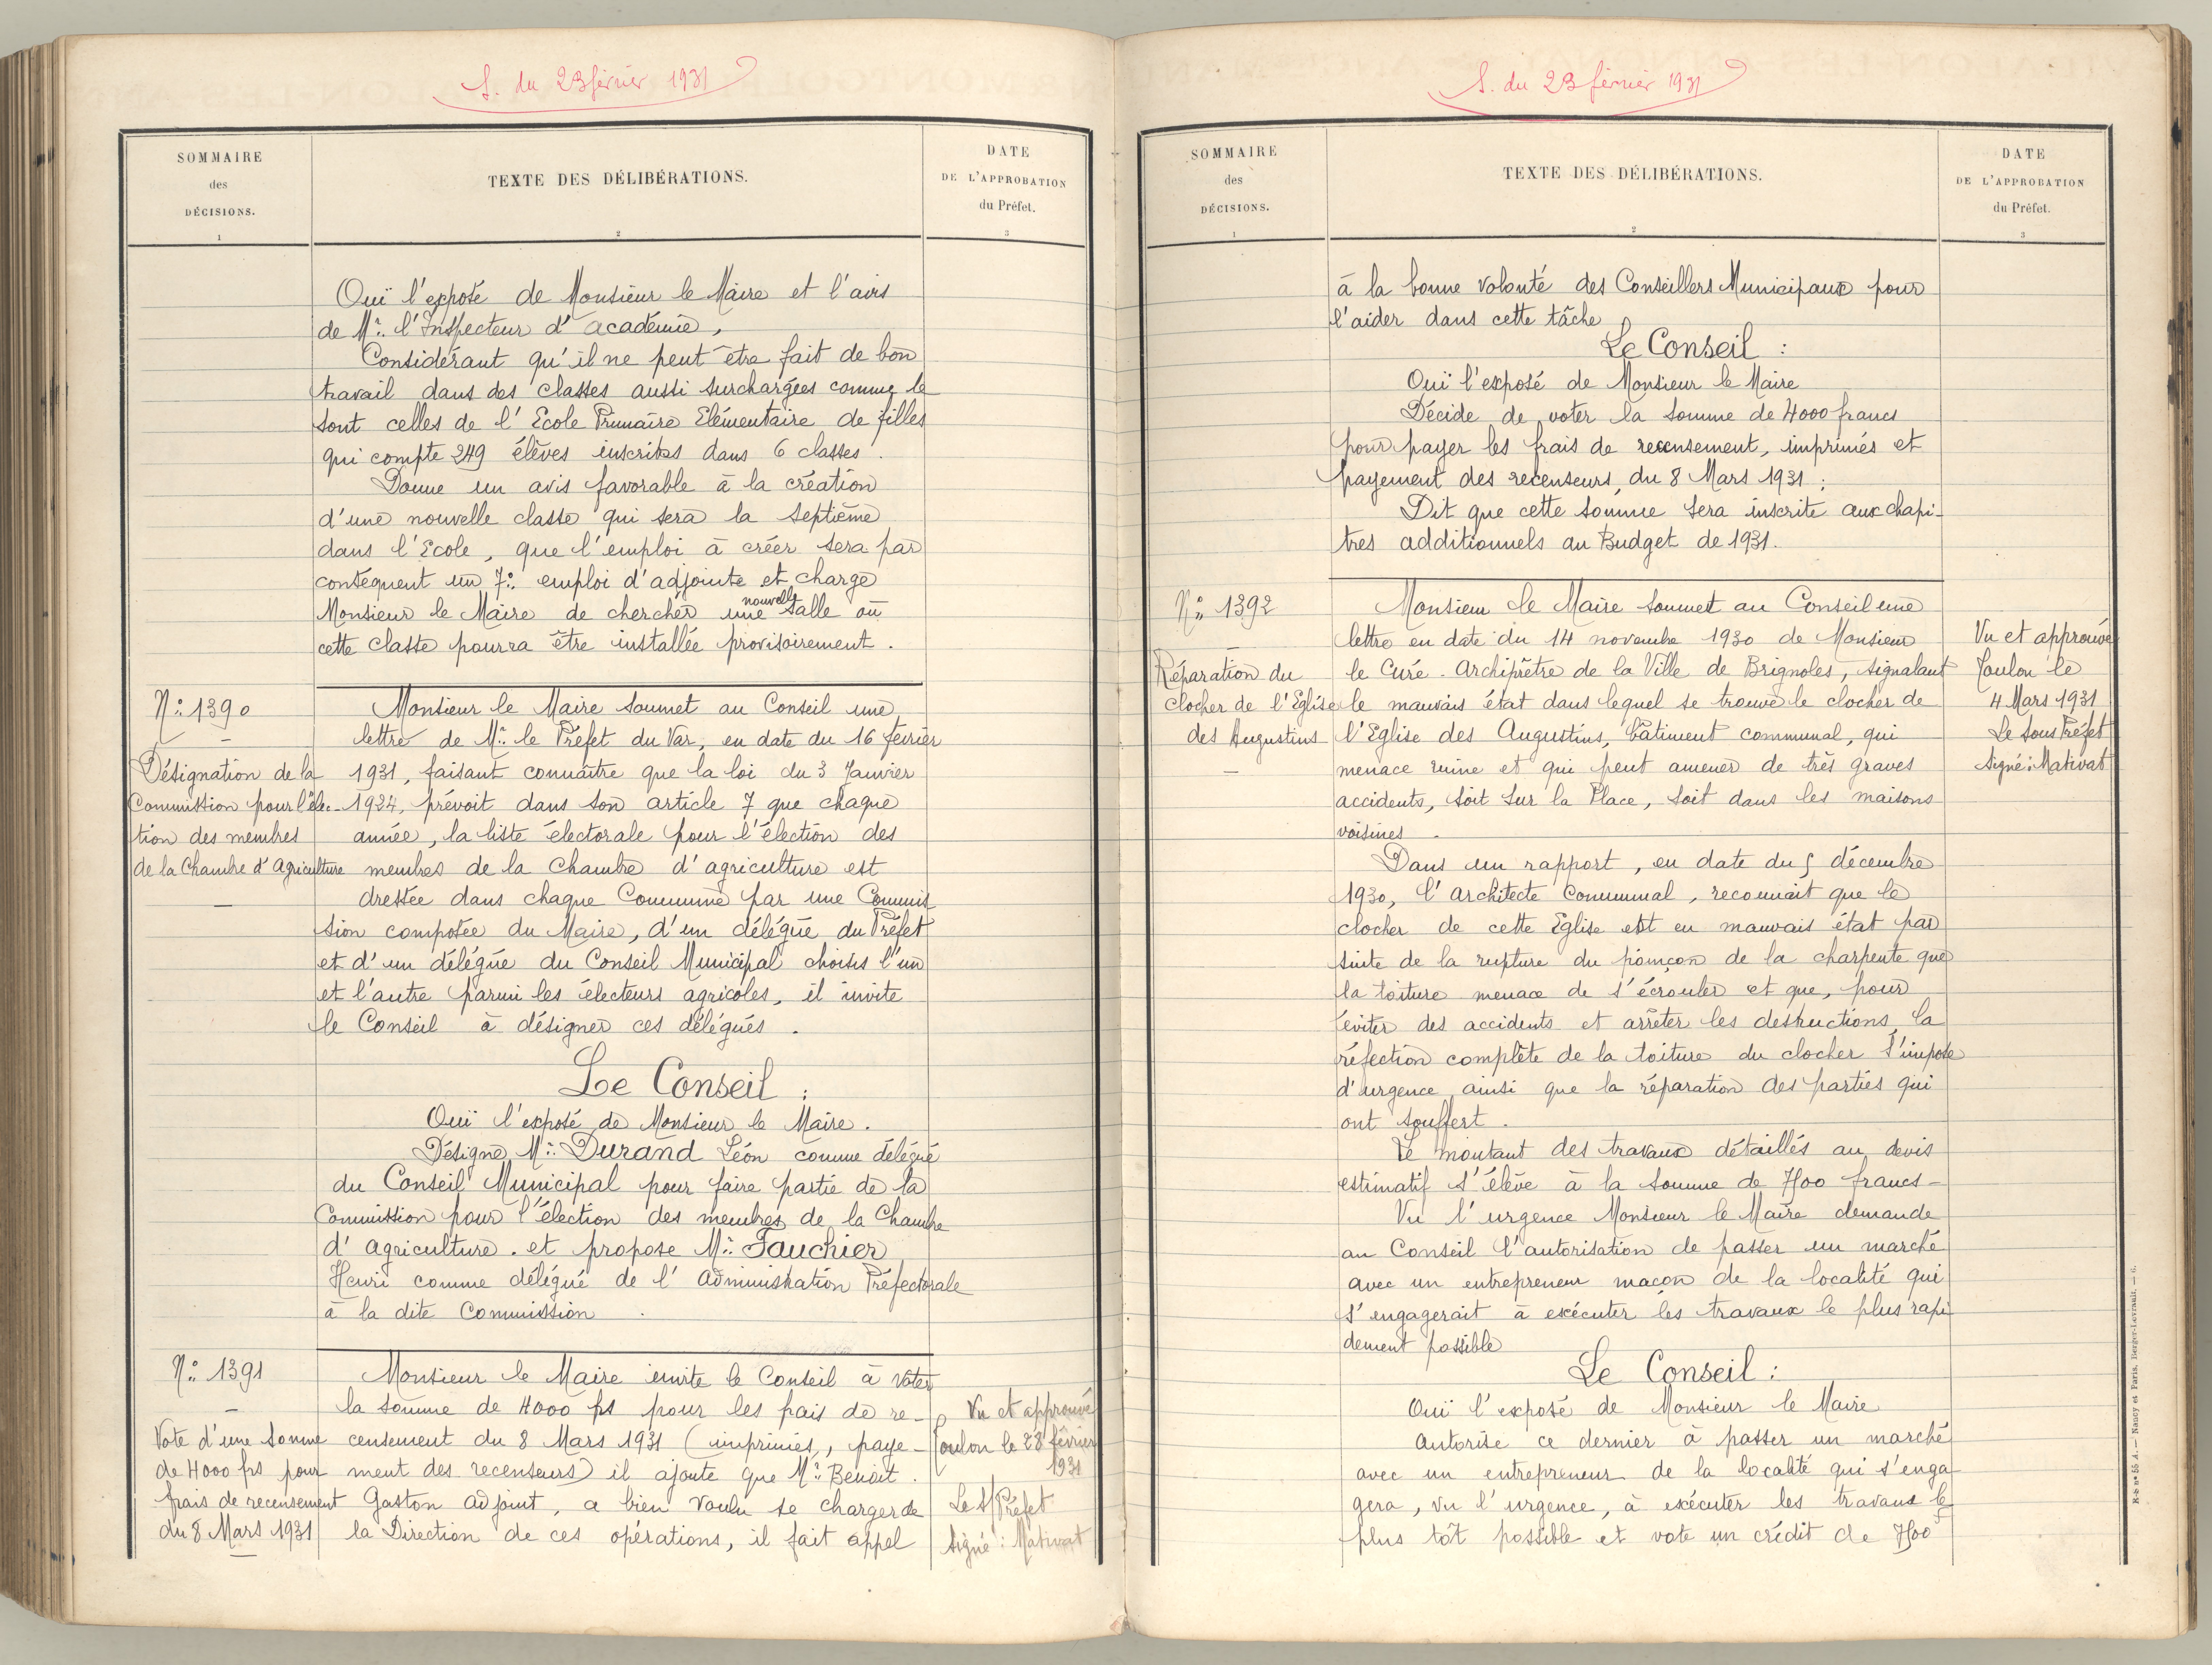 S. du 23 février 1931
SOMMAIRE
des
DÉCISIONS.
1
TEXTE DES DÉLIBÉRATIONS.
2
DATE
DE L'APPROBATION
du Préfet.
3
Ouï l'exposé de Monsieur le Maire et l'avis
de Mr. l'Inspecteur d'académie,
Considérant qu'il ne peut être fait de bon
travail dans des classes aussi surchargées comme le
sont celles de l'Ecole Primaire Elémentaire de filles
qui compte 249 élèves inscrites dans 6 classes.
Donne un avis favorable à la création
d'une nouvelle classe qui sera la septième
dans l'Ecole, que l'emploi à créer sera par
conséquent un 7e. emploi d'adjointe et charge
Monsieur le Maire de chercher une nouvelle salle où
cette classe pourra être installée provisoirement.
No. 1390
Désignation de la
Commission pour l'élec-
tion des membres
de la Chambre d'Agriculture
Monsieur le Maire soumet au Conseil une
lettre de Mr. le Préfet du Var, en date du 16 février
1931, faisant connaître que la loi du 3 Janvier
1924, prévoit dans son article 7 que chaque
année, la liste électorale pour l'élection des
membres de la Chambre d'agriculture est
dressée dans chaque Commune par une Commis
sion composée du Maire, d'un délégué du Préfet
et d'un délégué du Conseil Municipal choisis l'un
et l'autre parmi les électeurs agricoles, il invite
le Conseil à désigner ces délégués.
Le Conseil :
Ouï l'exposé de Monsieur le Maire.
Désigne Mr. Durand Léon comme délégué
du Conseil Municipal pour faire partie de la
Commission pour l'élection des membres de la Chambre
d'agriculture. et propose Mr. Fauchier
Henri comme délégué de l'administration Préfectorale
à la dite Commission.
No. 1391
Vote d'une somme
de 4000 frs pour
frais de recensement
du 8 Mars 1931
Monsieur le Maire invite le Conseil à voter
la somme de 4000 frs pour les frais de re-
censement du 8 Mars 1931 (imprimés, paye-
ment des recenseurs) il ajoute que Mr. Benoit.
Gaston adjoint, a bien voulu se charger de
la Direction de ces opérations, il fait appel
Vu et approuvé
Toulon le 28 février
1931
Le S/Préfet
Signé : Mativat
S. du 23 février 1931
SOMMAIRE
des
DÉCISIONS.
1
TEXTE DES DÉLIBÉRATIONS.
2
DATE
DE L'APPROBATION
du Préfet.
3
à la bonne volonté des Conseillers Municipaux pour
l'aider dans cette tâche
Le Conseil :
Ouï l'exposé de Monsieur le Maire
Décide de voter la somme de 4000 francs
pour payer les frais de recensement, imprimés et
payement des recenseurs, du 8 Mars 1931 ;
Dit que cette somme sera inscrite aux chapi-
tres additionnels au Budget de 1931.
No. 1392
Réparation du
clocher de l'Eglise
des Augustins
Monsieur le Maire soumet au Conseil une
lettre en date du 14 novembre 1930 de Monsieur
le Curé-Archiprêtre de la Ville de Brignoles, signalant
le mauvais état dans lequel se trouve le clocher de
l'Eglise des Augustins, bâtiment communal, qui
menace ruine et qui peut amener de très graves
accidents, soit sur la Place, soit dans les maisons
voisines.
Dans un rapport, en date du 5 décembre
1930, l'architecte Communal, reconnait que le
clocher de cette Eglise est en mauvais état par
suite de la rupture du poinçon de la charpente que
la toiture menace de s'écrouler et que, pour
éviter des accidents et arrêter les destructions, la
réfection complète de la toiture du clocher s'impose
d'urgence, ainsi que la réparation des parties qui
ont souffert.
Le montant des travaux détaillés au devis
estimatif s'élève à la somme de 7500 francs-
Vu l'urgence Monsieur le Maire demande
au Conseil l'autorisation de passer un marché
avec un entrepreneur maçon de la localité qui
s'engagerait à exécuter les travaux le plus rapi
dement possible
Le Conseil :
Ouï l'exposé de Monsieur le Maire
Autorise ce dernier à passer un marché
avec un entrepreneur de la localité qui s'enga
gera, vu l'urgence, à exécuter les travaux le
plus tôt possible et vote un crédit de 7500 f
Vu et approuvé
Toulon le
4 Mars 1931
Le Sous Préfet
Signé : Mativat
N-b n° 55 A. — Nancy et Paris, Berger-Levrault. — 6.